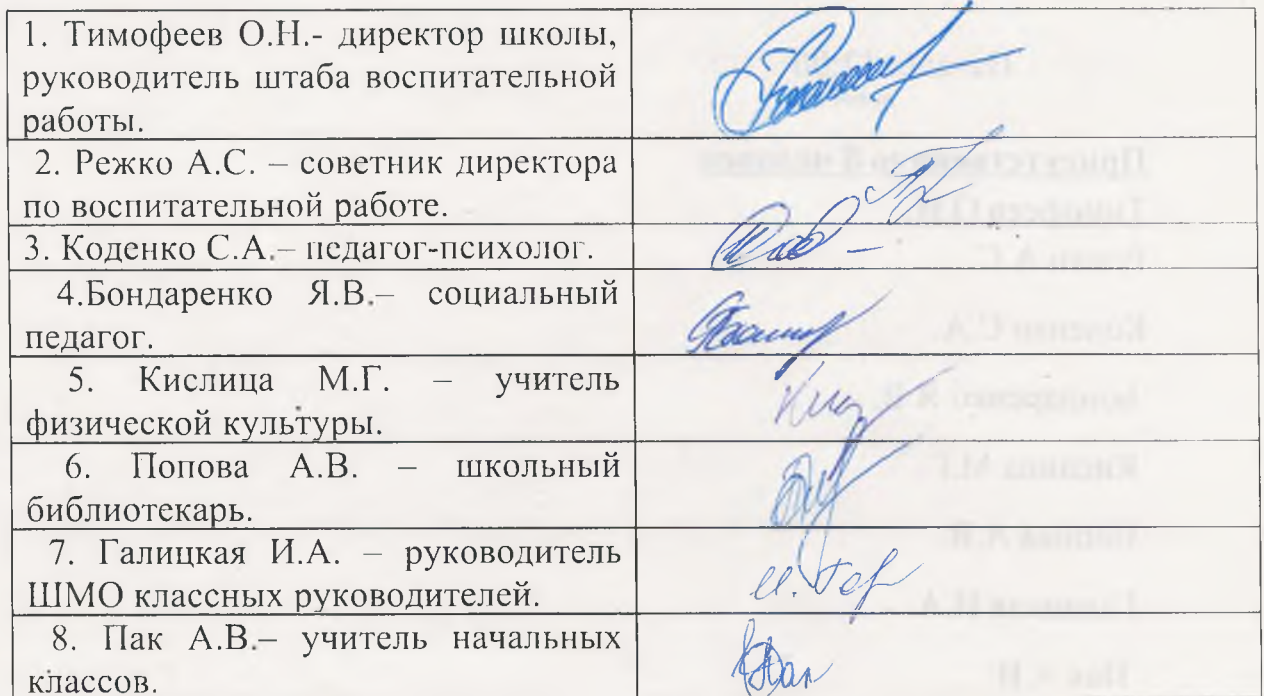 1. Тимофеев О.Н.- директор школы,
руководитель штаба воспитательной
работы.
2. Режко А.С. – советник директора
по воспитательной работе.
3. Коденко С.А.– педагог-психолог.
4.Бондаренко Я.В.– социальный
педагог.
5. Кислица М.Г. – учитель
физической культуры.
6. Попова А.В. – школьный
библиотекарь.
7. Галицкая И.А. – руководитель
ШМО классных руководителей.
8. Пак А.В.– учитель начальных
классов.